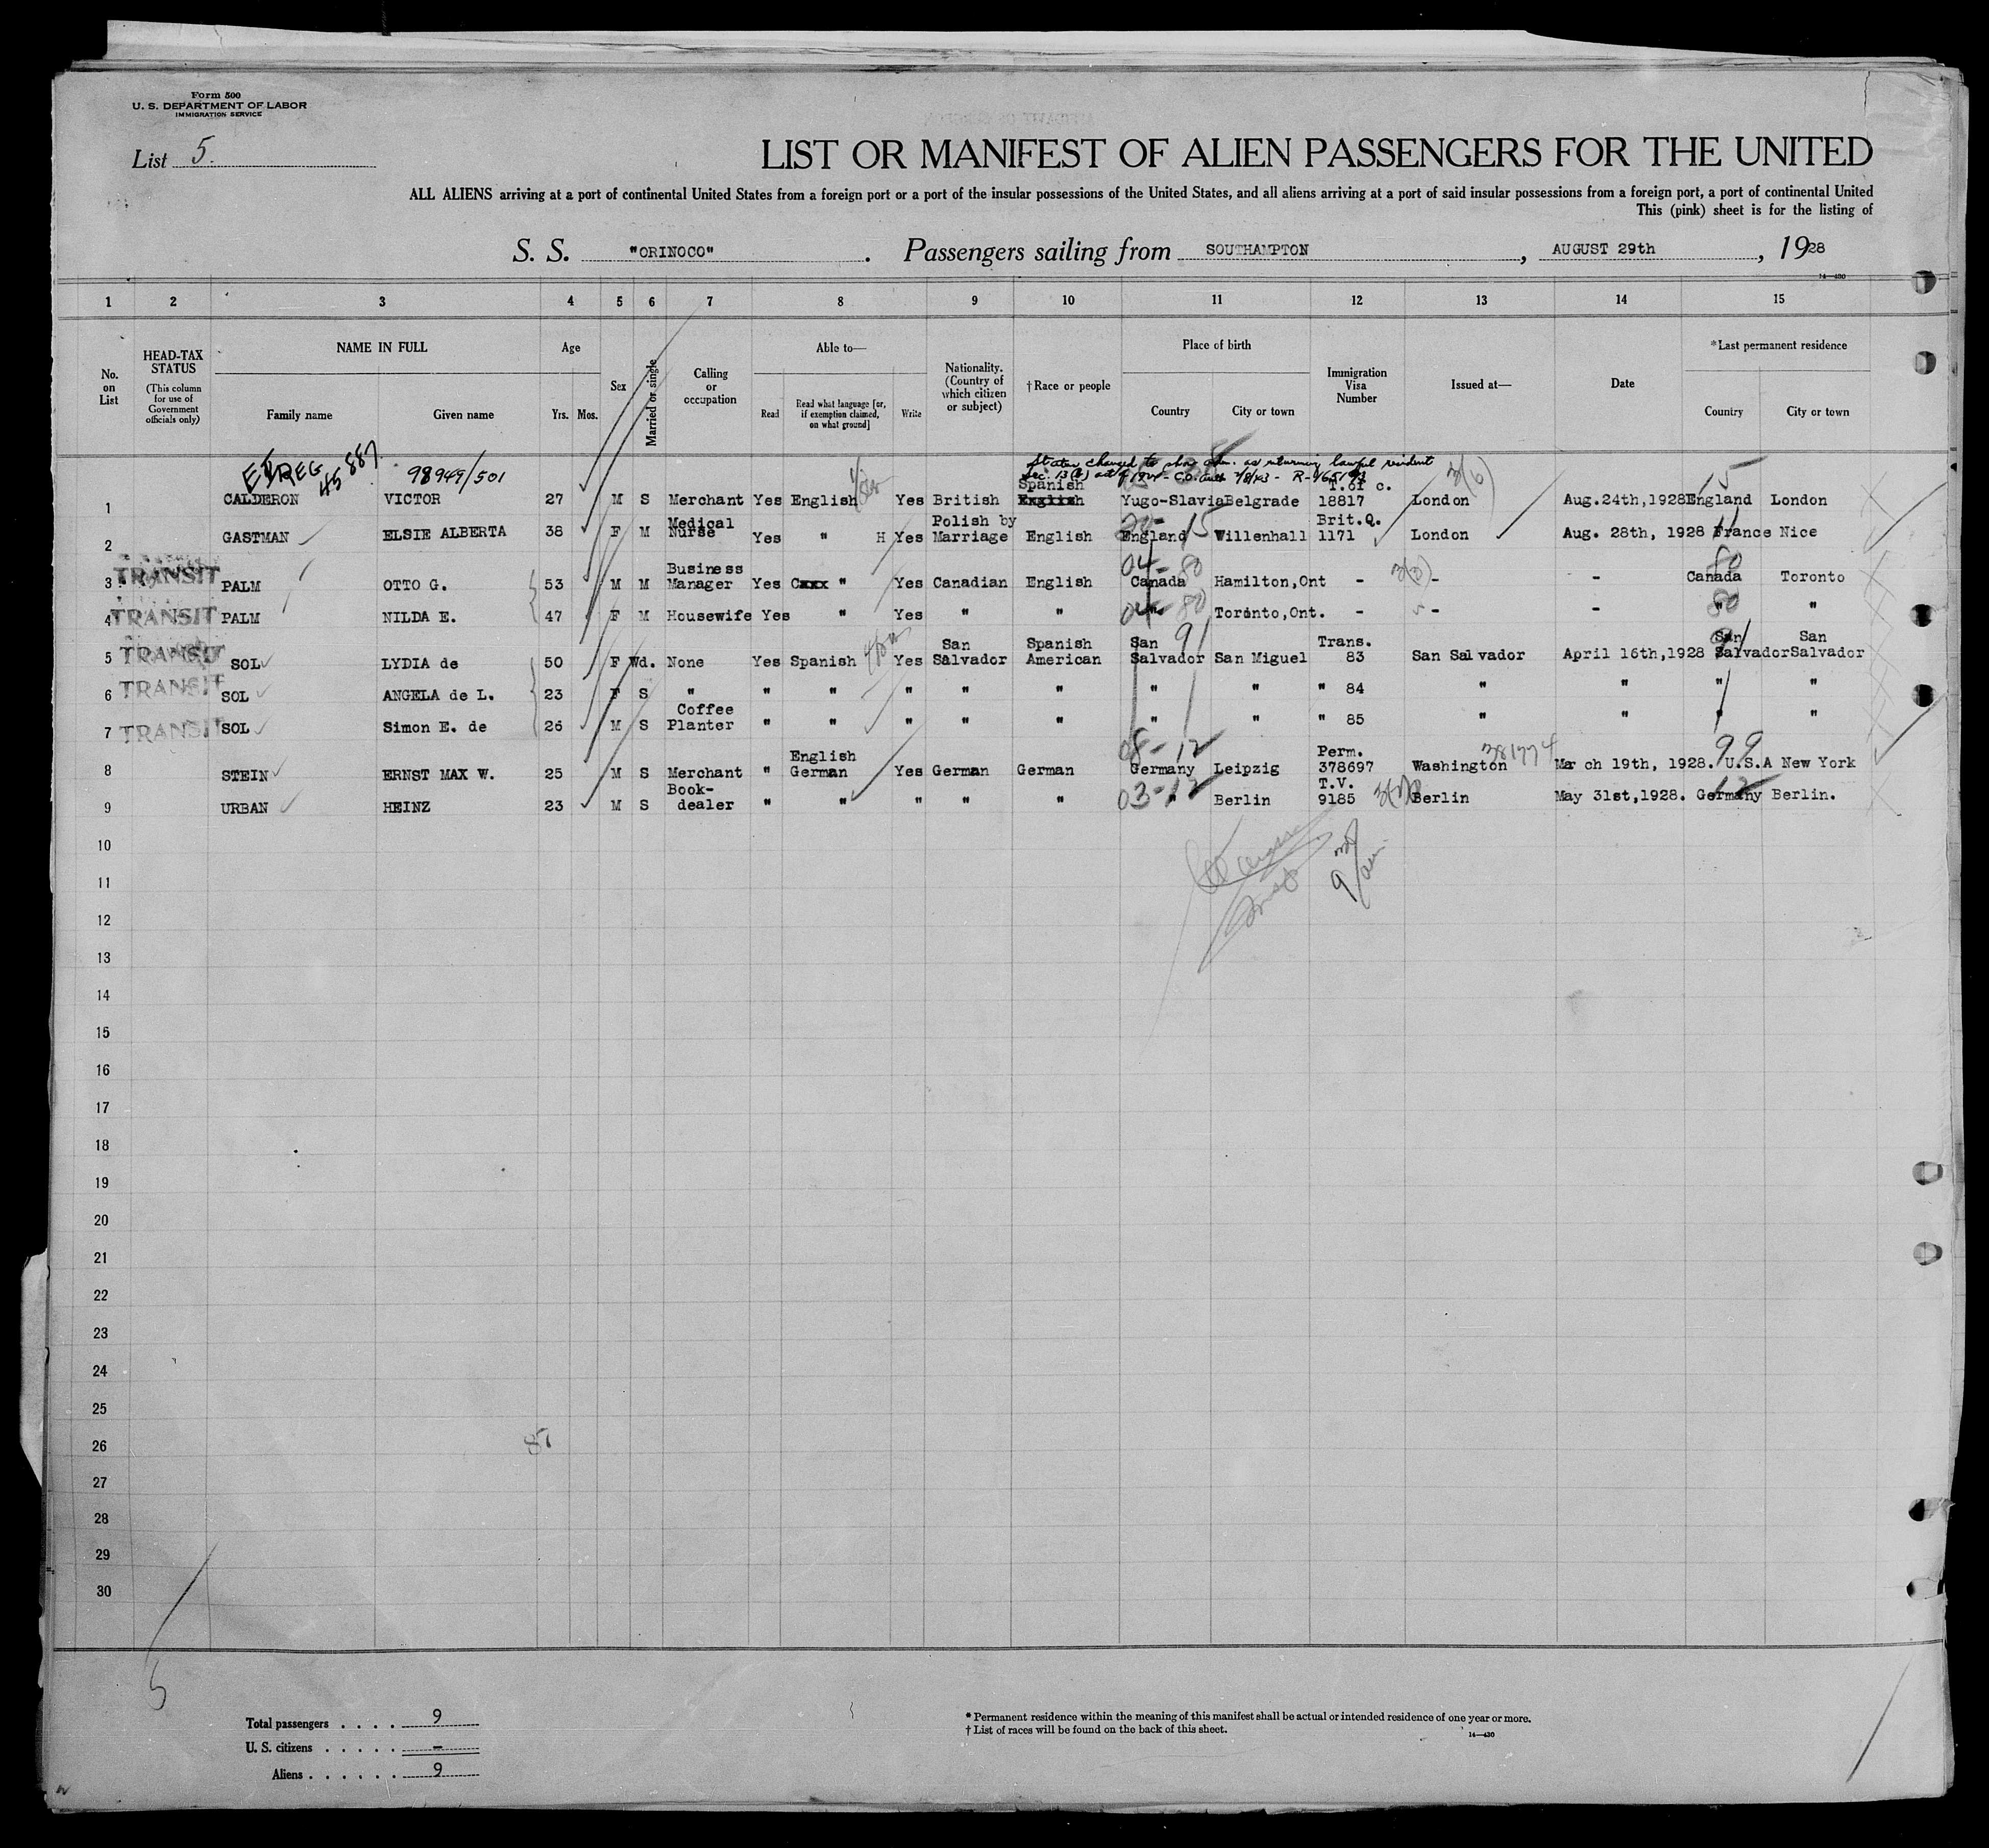 Form 500
U. S. DEPARTMENT OF LABOR
IMMIGRATION SERVICE
List 5.
LIST OR MANIFEST OF ALIEN PASSENGERS FOR THE UNITED
ALL ALIENS arriving at a port of continental United States from a foreign port or a port of the insular possessions of the United States, and all aliens arriving at a port of said insular possessions from a foreign port, a port of continental United
This (pink) sheet is for the listing of
S. S. "ORINOCO". Passengers sailing from SOUTHAMPTON, AUGUST 29th, 1928
14—430
1 2 3 4 5 6 7 8 9 10 11 12 13 14 15
No. on List
HEAD-TAX STATUS
(This column for use of Government officials only)
NAME IN FULL
Family name
Given name
Age
Yrs. Mos.
Sex
Married or single
Calling or occupation
Able to—
Read
Read what language [or, if exemption claimed, on what ground]
Write
Nationality. (Country of which citizen or subject)
†Race or people
Place of birth
Country
City or town
Immigration Visa Number
Issued at—
Date
*Last permanent residence
Country
City or town
98949/501
Status changed to show adm. as returning lawful resident
1 CALDERON VICTOR 27 M S Merchant Yes English Yes British Spanish Yugo-Slavia Belgrade T.of c. 18817 London Aug.24th,1928 England London
2 GASTMAN ELSIE ALBERTA 38 F M Medical Nurse Yes " H Yes Polish by Marriage English England Willenhall Brit.Q. 1171 London Aug. 28th, 1928 France Nice
3 TRANSIT PALM OTTO G. 53 M M Business Manager Yes Cxxx " Yes Canadian English Canada Hamilton,Ont - - - Canada Toronto
4 TRANSIT PALM NILDA E. 47 F M Housewife Yes " Yes " " " Toronto,Ont. - - - " "
5 TRANSIT SOL LYDIA de 50 F Wd. None Yes Spanish Yes San Salvador Spanish American San Salvador San Miguel Trans. 83 San Salvador April 16th,1928 San Salvador San Salvador
6 TRANSIT SOL ANGELA de L. 23 F S " " " " " " " " " 84 " " " "
7 TRANSIT SOL Simon E. de 26 M S Coffee Planter " " " " " " " " 85 " " " "
8 STEIN ERNST MAX W. 25 M S Merchant " English German Yes German German Germany Leipzig Perm. 378697 Washington 381774 March 19th, 1928. U.S.A New York
9 URBAN HEINZ 23 M S Book-dealer " " " " " " Berlin T.V. 9185 Berlin May 31st,1928. Germany Berlin.
10
11
12
13
14
15
16
17
18
19
20
21
22
23
24
25
26
27
28
29
30
Total passengers . . . . 9
U. S. citizens . . . . . -
Aliens . . . . . . 9
* Permanent residence within the meaning of this manifest shall be actual or intended residence of one year or more.
† List of races will be found on the back of this sheet.
14—430